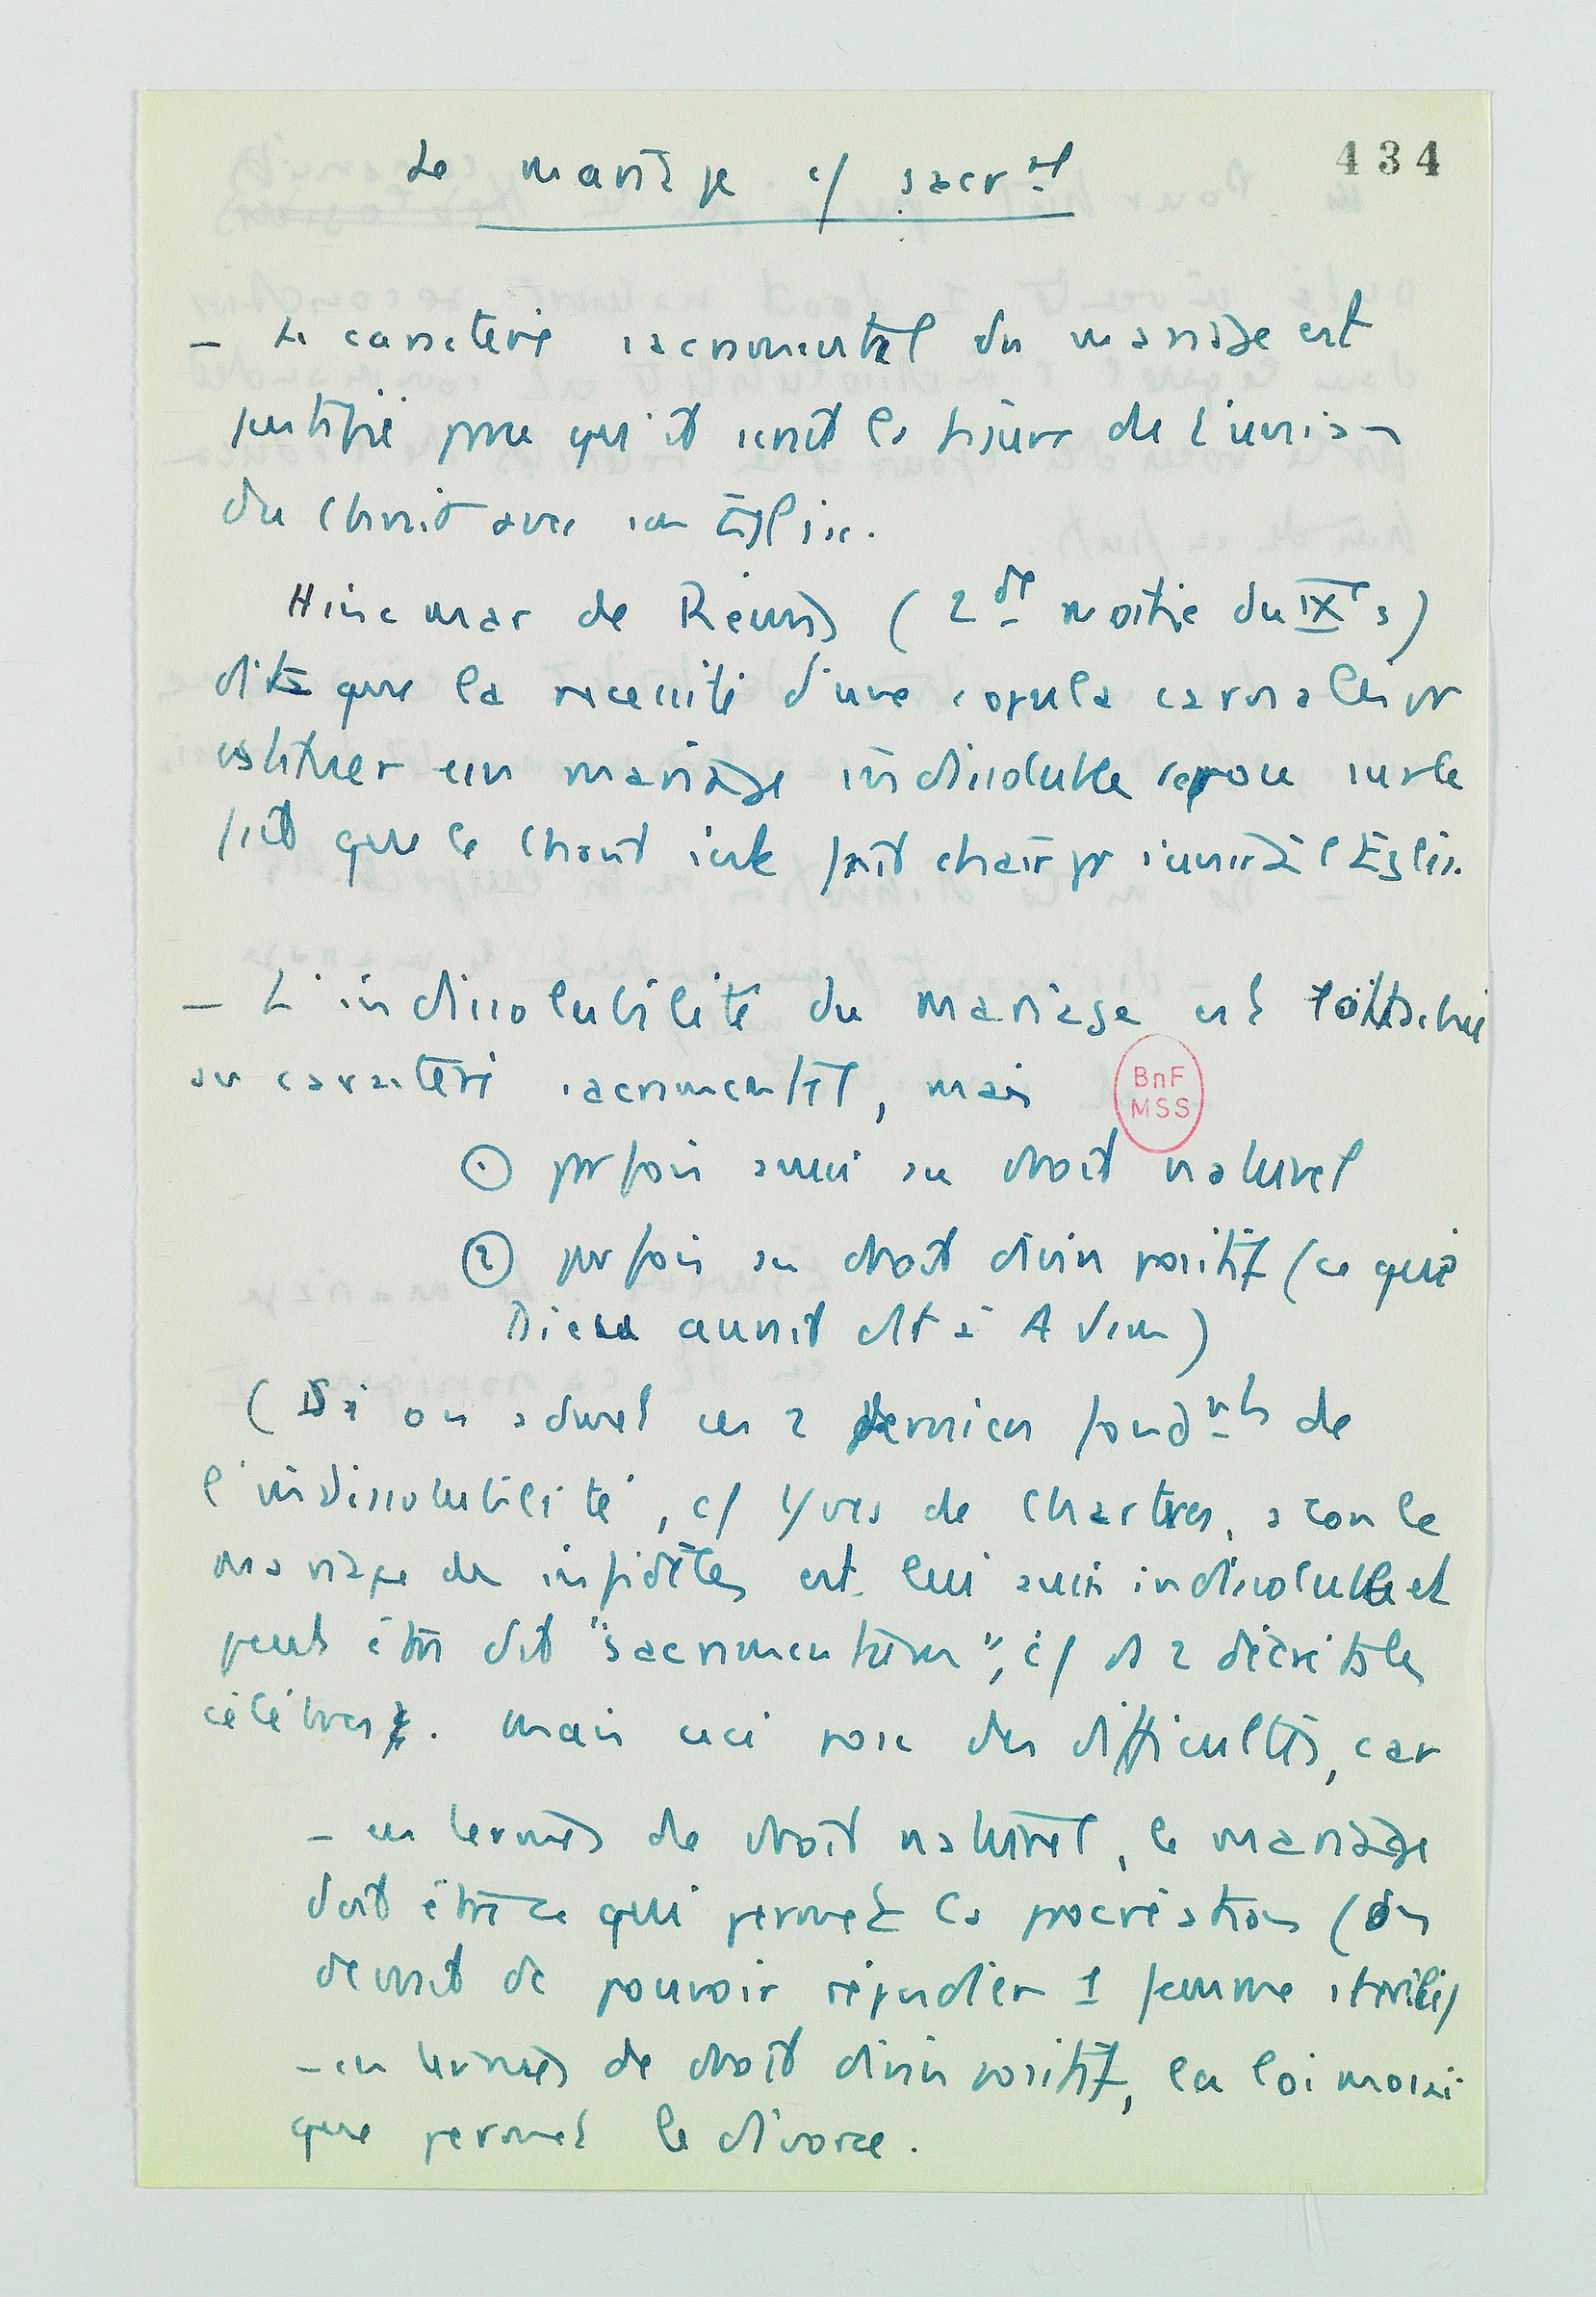 434
Le mariage c/ sacrnt
- Le caractère sacramentel du mariage est
justifié parce qu'il serait la figure de l'union
du Christ avec son Église.
Hincmar de Reims (2de moitié du IXe s)
dit que la nécessité d'une copula carnalis pr
constituer un mariage indissoluble repose sur le
fait que le Christ s'est fait chair pr s'unir à l'Église.
- L'indissolubilité du mariage est rattachée
au caractère sacramentel, mais
① parfois aussi au droit naturel
② parfois au droit divin positif (ce que
Dieu aurait dit à Adam)
(Si on admet ces 2 derniers fondnts de
l'indissolubilité, c/ Yves de Chartres, alors le
mariage des infidèles est lui aussi indissoluble et
peut être dit "sacramentum", c/ ds 2 décrétales
célèbres. Mais ceci pose des difficultés, car
- en termes de droit naturel, le mariage
doit être ce qui permet la procréation (on
devrait dc pouvoir répudier 1 femme stérile)
- en termes de droit divin positif, la loi mosaï
que permet le divorce.
BnF
MSS